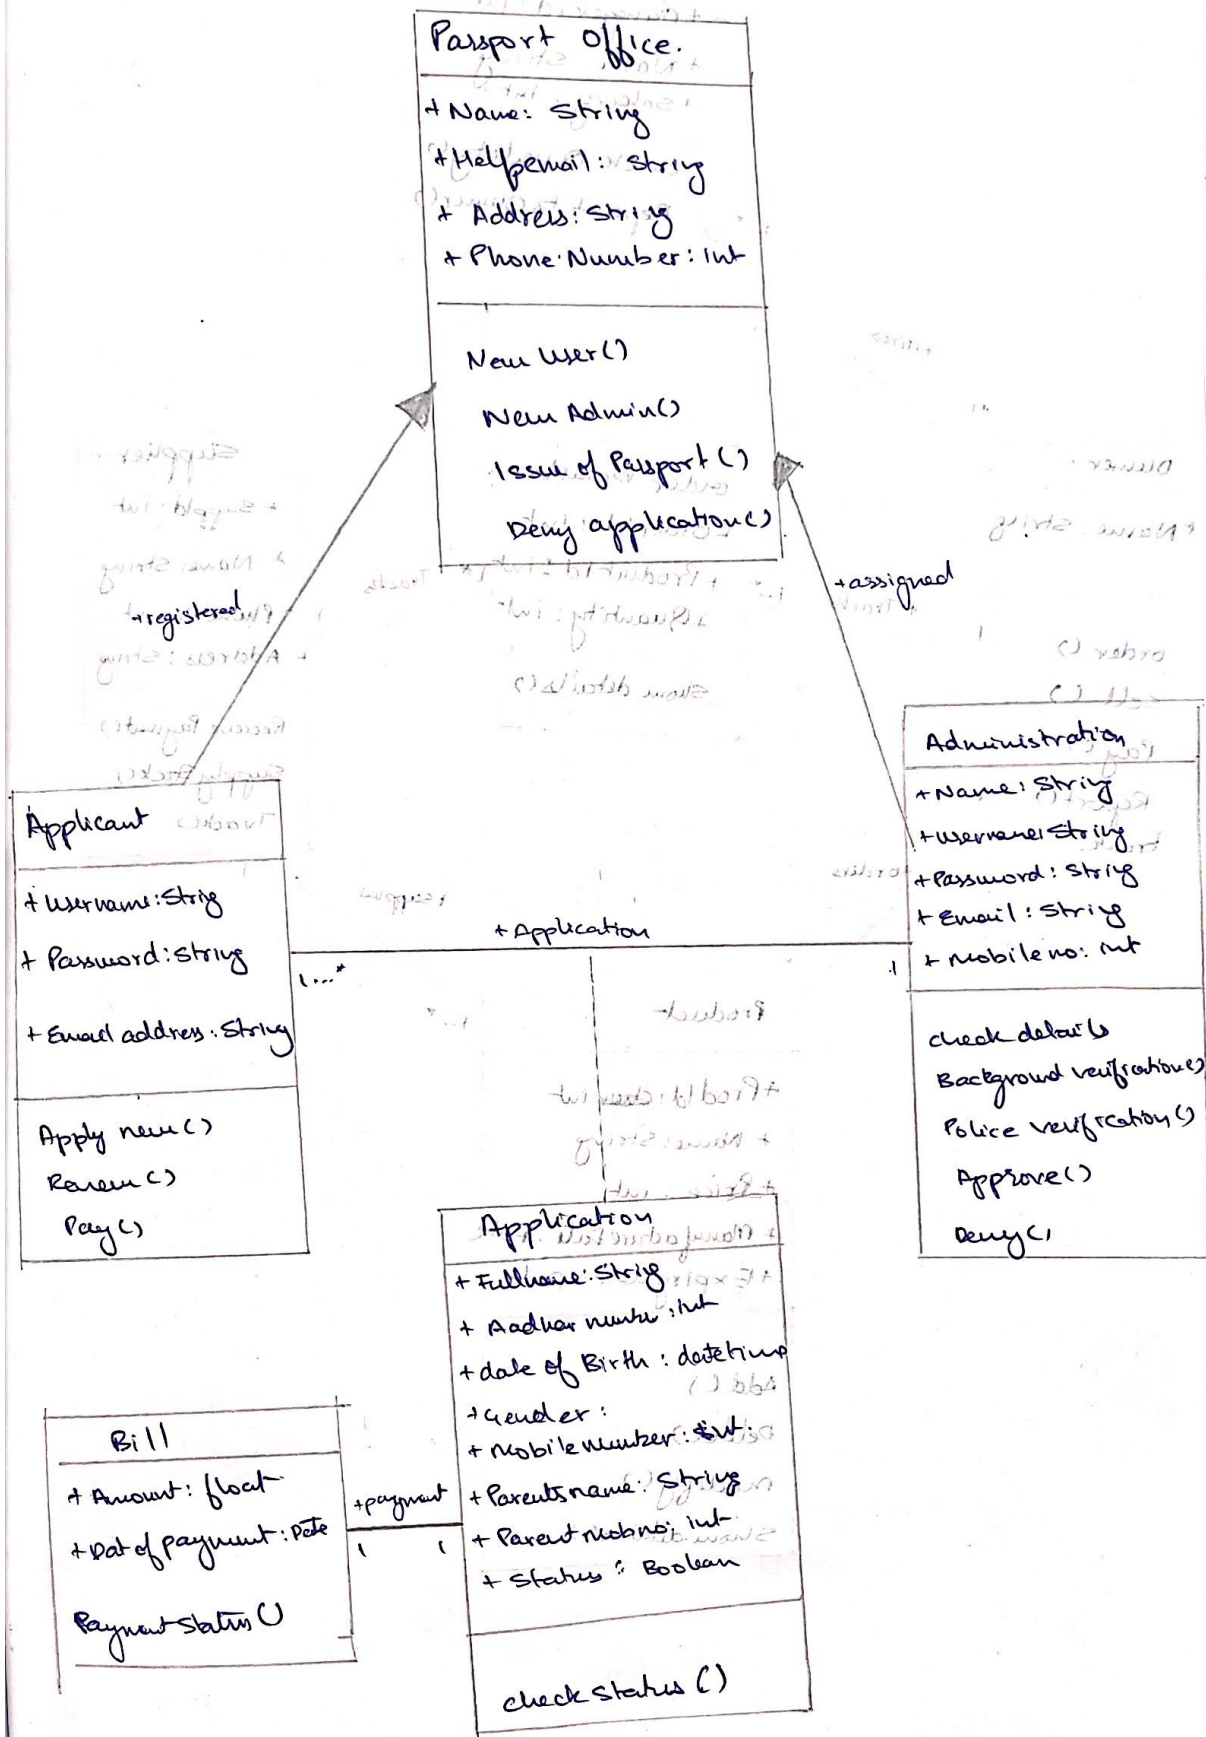 Passport Office.
+ Name: String
+ Helpemail: String
+ Address: String
+ Phone Number: int
New User()
New Admin()
Issue of Passport ()
Deny application()
+registered
+assigned
Applicant
+ Username: Strig
+ Password: String
+ Email address: String
Apply new()
Renew()
Pay()
+ Application
1...*
1
Administration
+ Name: String
+ Username: String
+ Password: String
+ Email: String
+ Mobile no: int
check details
Background verification()
Police verification()
Approve()
Deny()
Application
+ Fullname: Strig
+ Aadhar number: int
+ date of Birth: datetime
+ Gender:
+ Mobile number: int.
+ Parentsname: String
+ Parent mobno: int
+ Status: Boolean
check status ()
Bill
+ Amount: float
+ Dat of payment: Date
Payment Status()
+payment
1 1